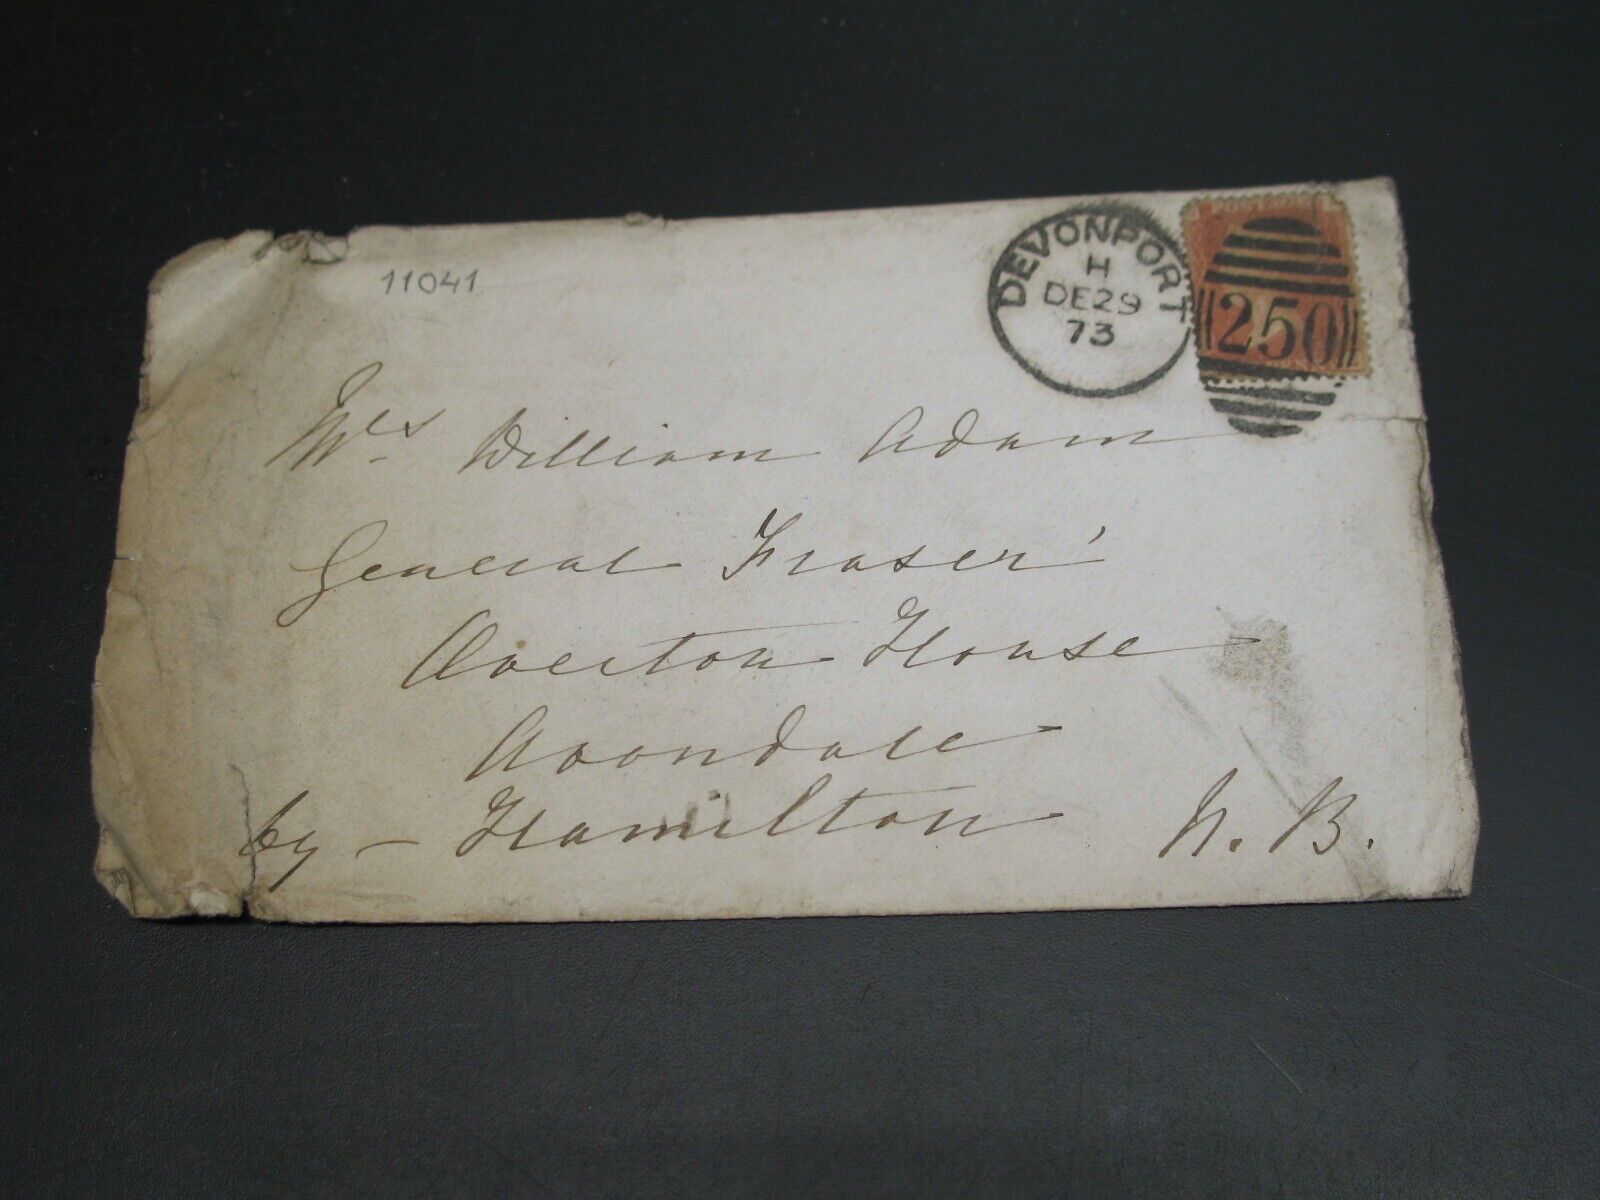 11041
DEVONPORT
H
DE29
73
250
Mrs William Adam
General Fraser'
Overton House
Avondale
by - Hamilton N. B.